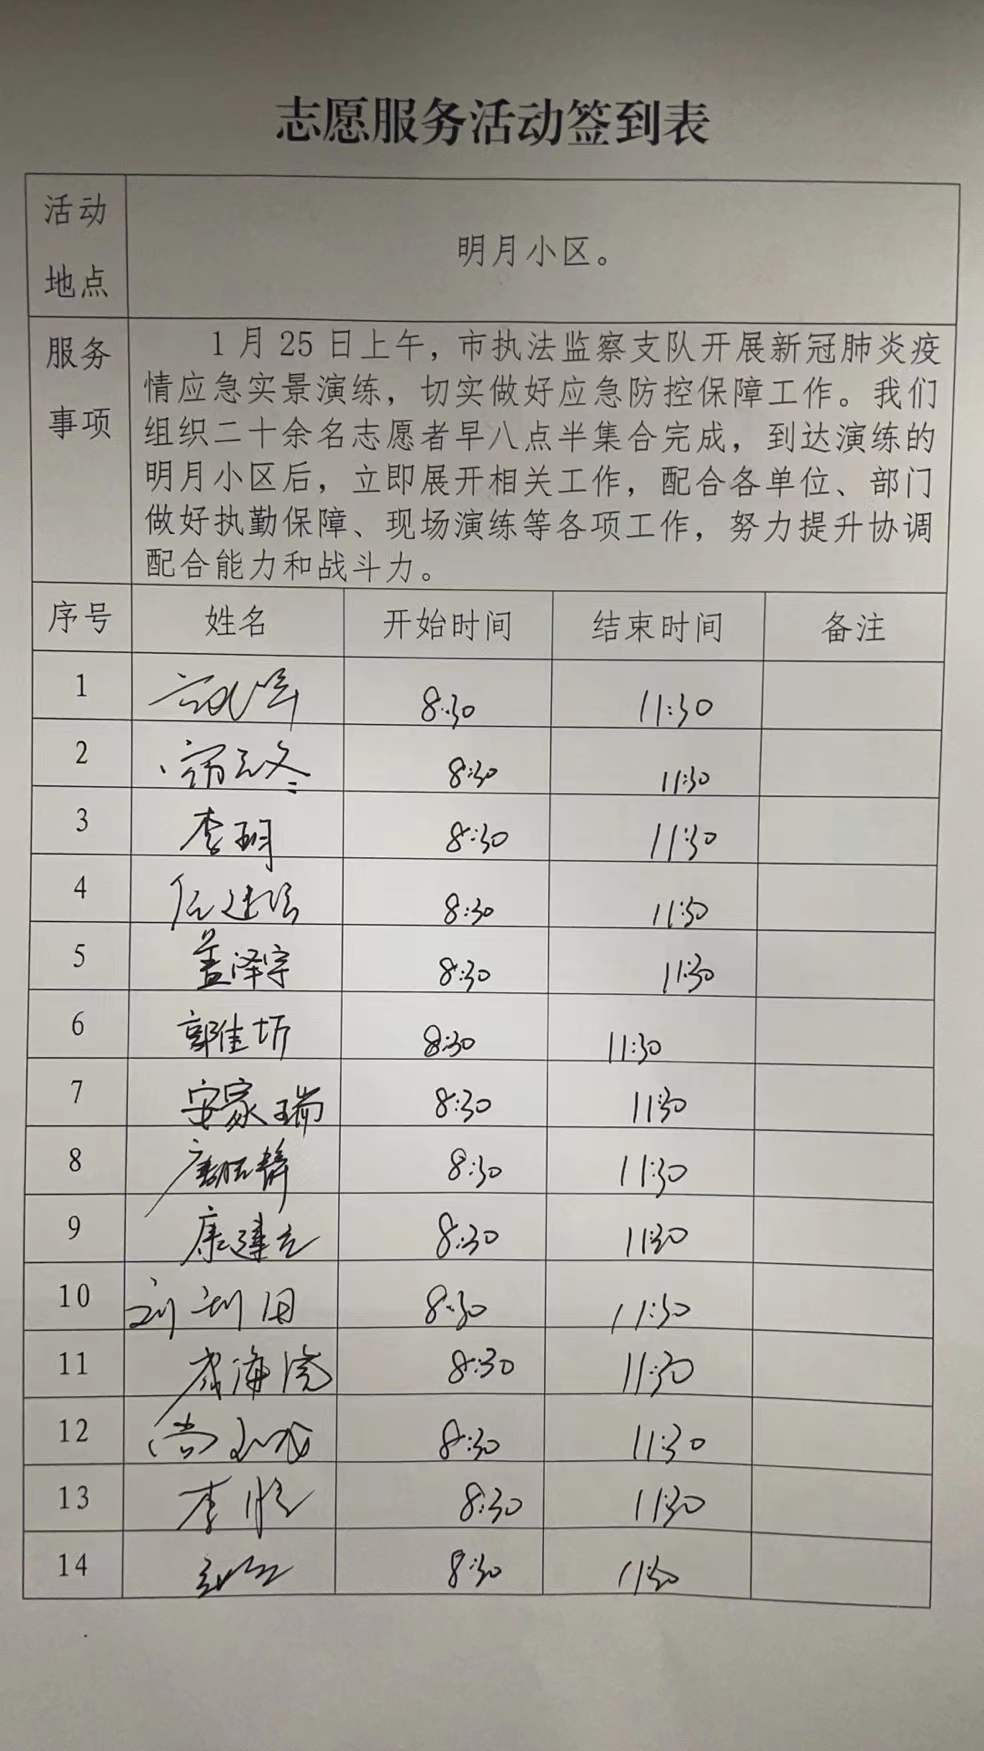 志愿服务活动签到表
活动地点 明月小区。
服务事项
1月25日上午，市执法监察支队开展新冠肺炎疫
情应急实景演练，切实做好应急防控保障工作。我们
组织二十余名志愿者早八点半集合完成，到达演练的
明月小区后，立即展开相关工作，配合各单位、部门
做好执勤保障、现场演练等各项工作，努力提升协调
配合能力和战斗力。
序号 姓名 开始时间 结束时间 备注
1 8:30 11:30
2 8:30 11:30
3 李玥 8:30 11:30
4 8:30 11:30
5 盖泽宇 8:30 11:30
6 郭佳圻 8:30 11:30
7 安家瑞 8:30 11:30
8 8:30 11:30
9 康建立 8:30 11:30
10 8:30 11:30
11 8:30 11:30
12 8:30 11:30
13 8:30 11:30
14 8:30 11:30